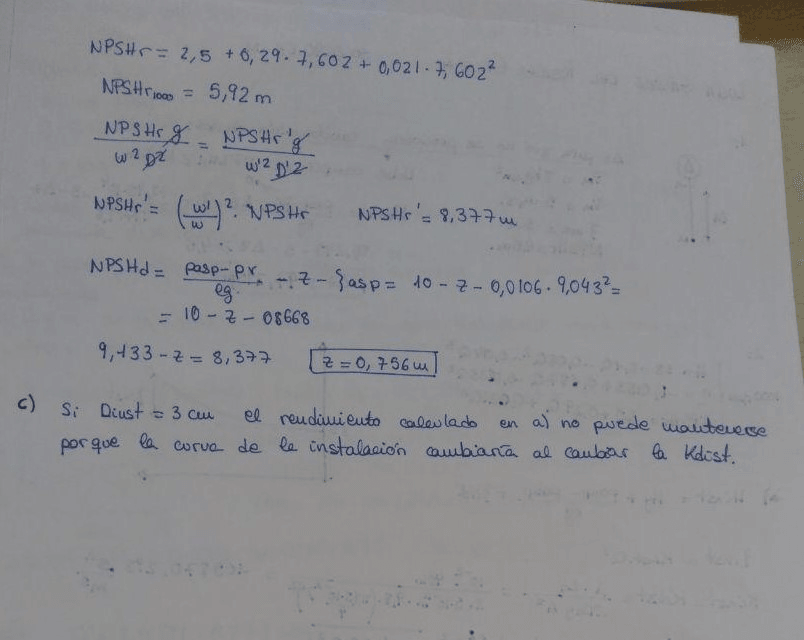 NPSHr = 2,5 + 0,29 · 7,602 + 0,021 · 7,602²
NPSHr₁₀₀₀ = 5,92 m
NPSHr g / w² D² = NPSHr' g / w'² D'²
NPSHr' = (w'/w)² · NPSHr    NPSHr' = 8,377 m
NPSHd = (pasp - pv)/ρg - z - ξasp = 10 - z - 0,0106 · 9,043² =
= 10 - z - 0'8668
9,133 - z = 8,377    z = 0,756 m
c) Si Dinst = 3 cm el rendimiento calculado en a) no puede mantenerse
porque la curva de la instalación cambiaría al cambiar la Kdist.